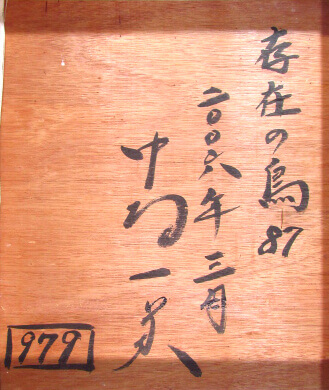 存在の鳥 87
二〇〇六年 三月
中村一美
979